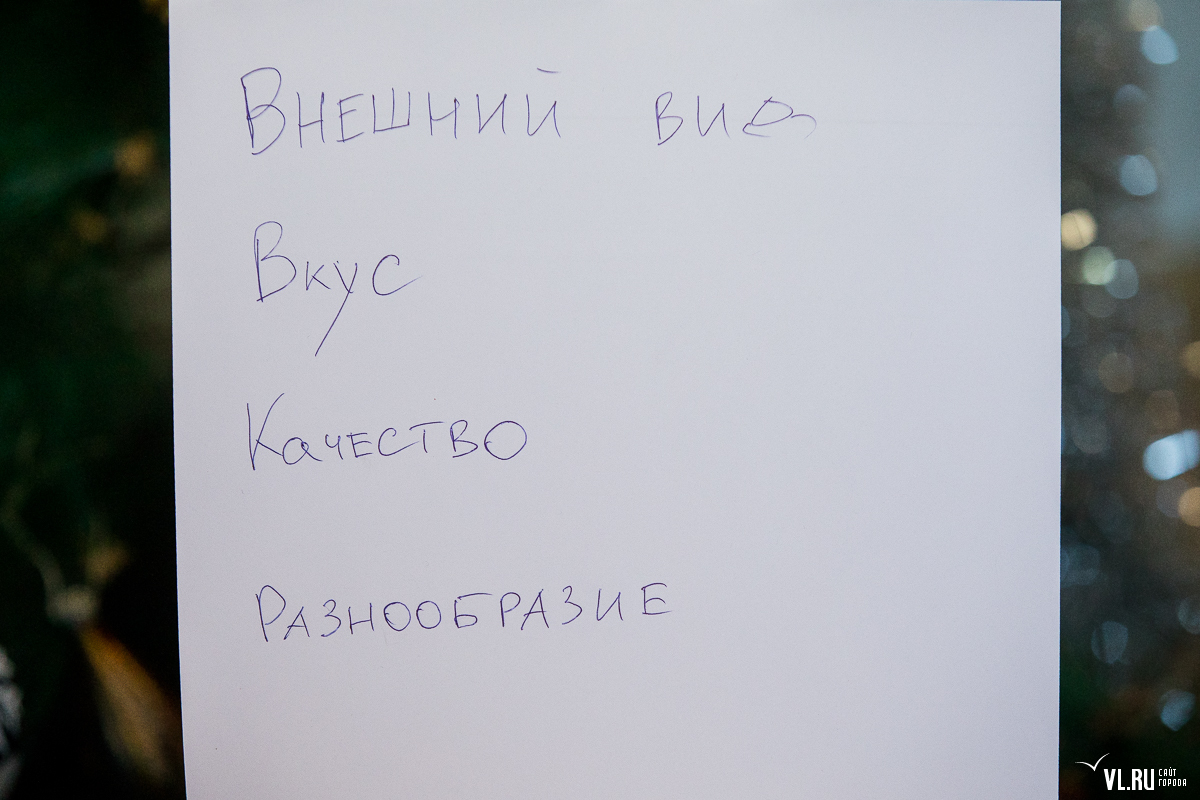 Внешний вид
Вкус
Качество
Разнообразие
VL.RU САЙТ ГОРОДА